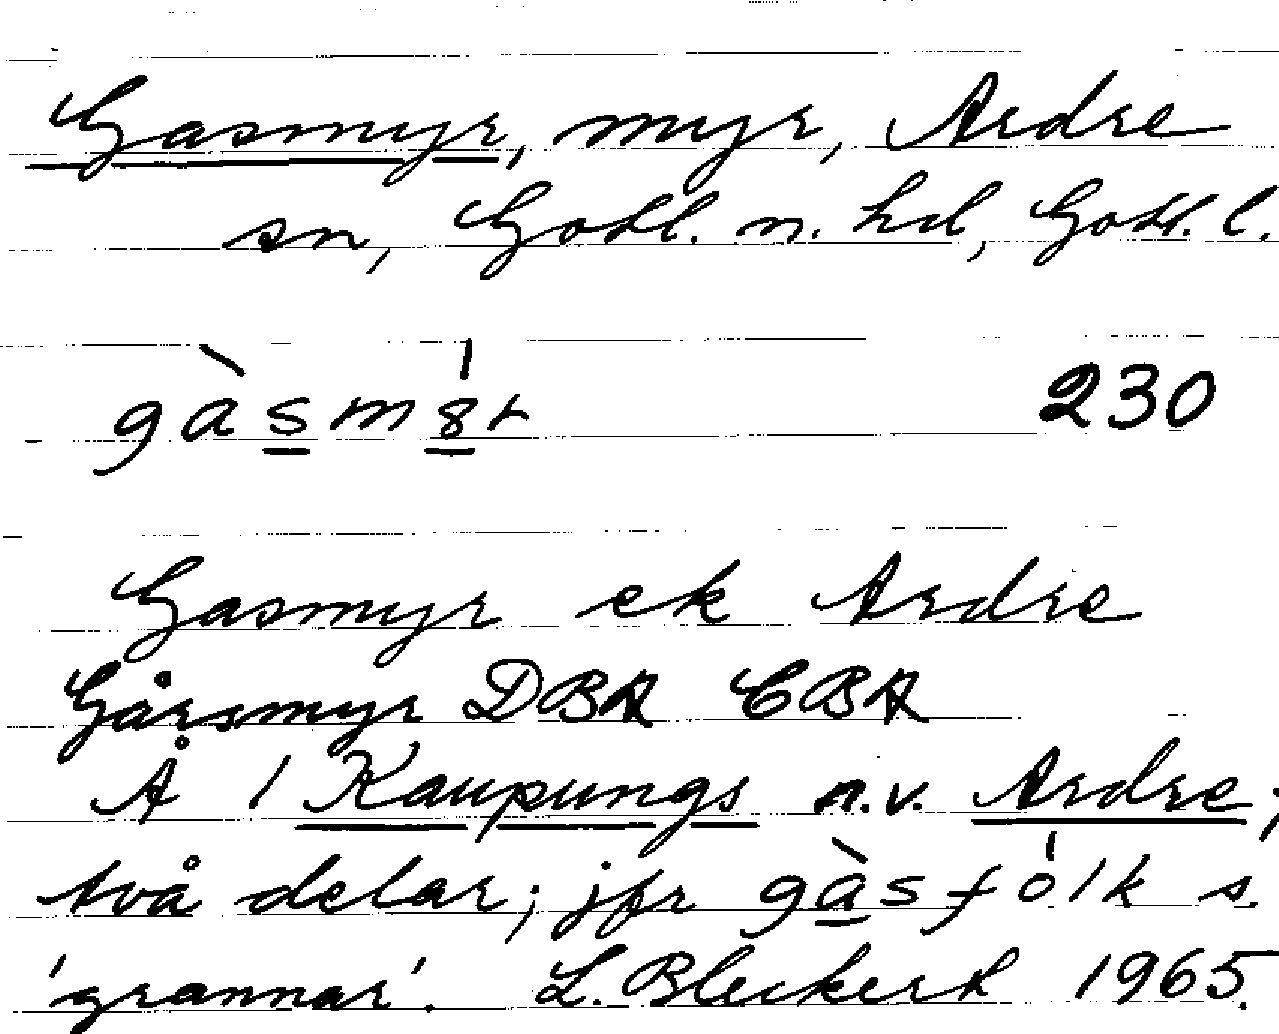 Gasmyr, myr, Ardre
sn, Gotl. n. hd, Gotl. l.
gàsm8r 230
Gasmyr ek Ardre
Gårsmyr DBA CBA
Å / Kaupungs n.v. Ardre;
två delar; jfr gàsfólk s.
'grannar'. L. Bleckert 1965.